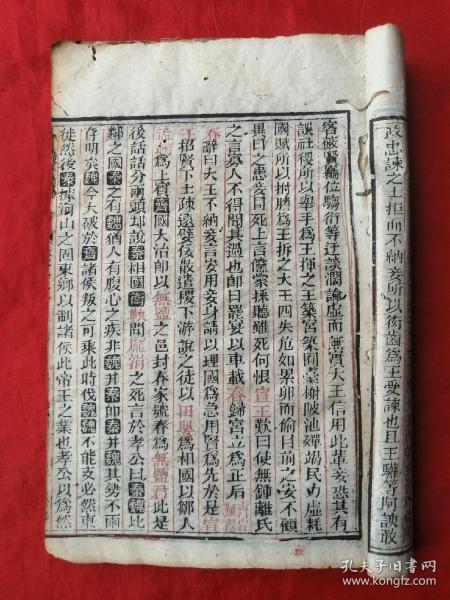 政忠諫之士拒而不納妾所以銜齒爲王受諫也且王驩等阿諛敢
位騶衍等迂談濶論虛而無實大王信用此輩妾恐其有
誤社稷所以舉手爲王揮之王築宮築囿臺榭陂池殫竭民力虛耗
國賦所以拊膝爲王拆之大王四失危如累卵而偷目前之安不顧
異日之患妾冒死上言儻蒙採聽雖死何恨宣王歎曰使無鍾離氏
之言寡人不得聞其過也卽日罷宴以車載春歸宮立爲正后
春辭曰大王不納妾言安用妾身請以理國爲急用賢爲先於是宣
王招賢下士疎遠嬖佞散遣稷下游說之徒以田嬰爲相國以鄒人
爲上賓齊國大治卽以無鹽之邑封春家號春爲無鹽君此是
後話話分兩頭却說秦相國衛鞅聞龐涓之死言於孝公曰秦魏比
鄰之國秦之有魏猶人有腹心之疾非魏幷秦卽秦幷魏其勢不兩
存明矣魏今大破於齊諸侯叛之可乘此時伐魏魏不能支必然東
徙然後秦據河山之固東鄉以制諸侯此帝王之業也孝公以爲然
孔夫子旧书网
book.kongfz.com